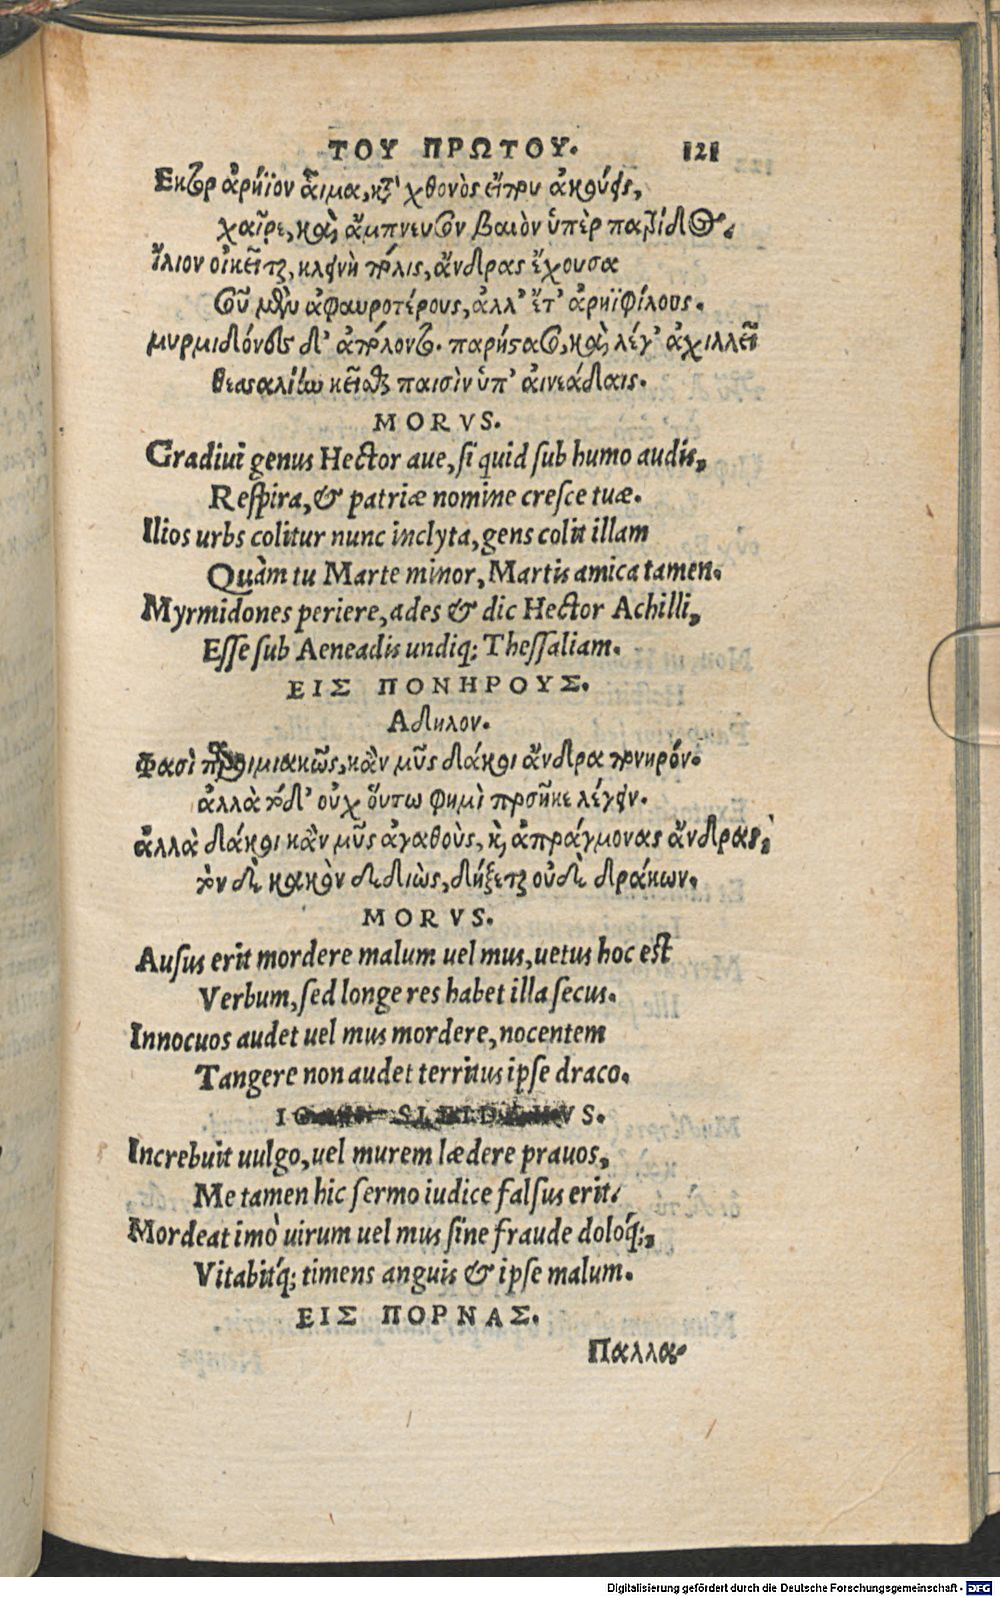 ΤΟΥ ΠΡΩΤΟΥ. 121
Εκτορ ἀρήϊον αἷμα, κατὰ χθονὸς εἴπου ἀκούεις,
χαῖρε, καὶ ἄμπνευσον βαιὸν ὑπὲρ πατρίδος.
Ἴλιον οἰκεῖται, κλεινὴ πόλις, ἄνδρας ἔχουσα
σοῦ μὲν ἀφαυροτέρους, ἀλλ' ἔτ' ἀρηϊφίλους.
μυρμιδόνες δ' ἀπόλοντο. παρήστασο, καὶ λέγ' ἀχιλλεῖ
θεσσαλίην κεῖσθαι πᾶσιν ὑπ' αἰνεάδαις.
MORVS.
Gradiui genus Hector aue, si quid sub humo audis,
Respira, & patriæ nomine cresce tuæ.
Ilios urbs colitur nunc inclyta, gens colit illam
Quàm tu Marte minor, Martis amica tamen.
Myrmidones periere, ades & dic Hector Achilli,
Esse sub Aeneadis undiq; Thessaliam.
ΕΙΣ ΠΟΝΗΡΟΥΣ.
Αδηλον.
Φασὶ παροιμιακῶς, κἂν μῦς δάκοι ἄνδρα πονηρόν.
ἀλλὰ τόδ' οὐχ οὕτω φημὶ προσῆκε λέγειν.
ἀλλὰ δάκοι κἂν μῦς ἀγαθοὺς, καὶ ἀπράγμονας ἄνδρας,
τὸν δὲ κακὸν δεδιὼς, δήξεται οὐδὲ δράκων.
MORVS.
Ausus erit mordere malum uel mus, uetus hoc est
Verbum, sed longe res habet illa secus.
Innocuos audet uel mus mordere, nocentem
Tangere non audet territus ipse draco.
Increbuit uulgo, uel murem lædere prauos,
Me tamen hic sermo iudice falsus erit.
Mordeat imò uirum uel mus sine fraude doloq́;,
Vitabitq́; timens anguis & ipse malum.
ΕΙΣ ΠΟΡΝΑΣ.
Παλλα-
Digitalisierung gefördert durch die Deutsche Forschungsgemeinschaft - DFG